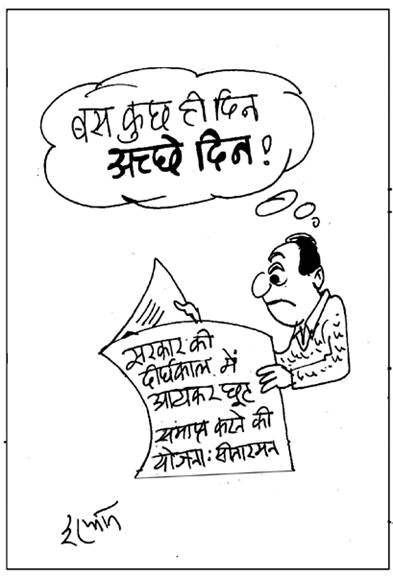 बस कुछ ही दिन
अच्छे दिन!
सरकार की
दीर्घकाल में
आयकर छूट
समाप्त करने की
योजना: सीतारमन